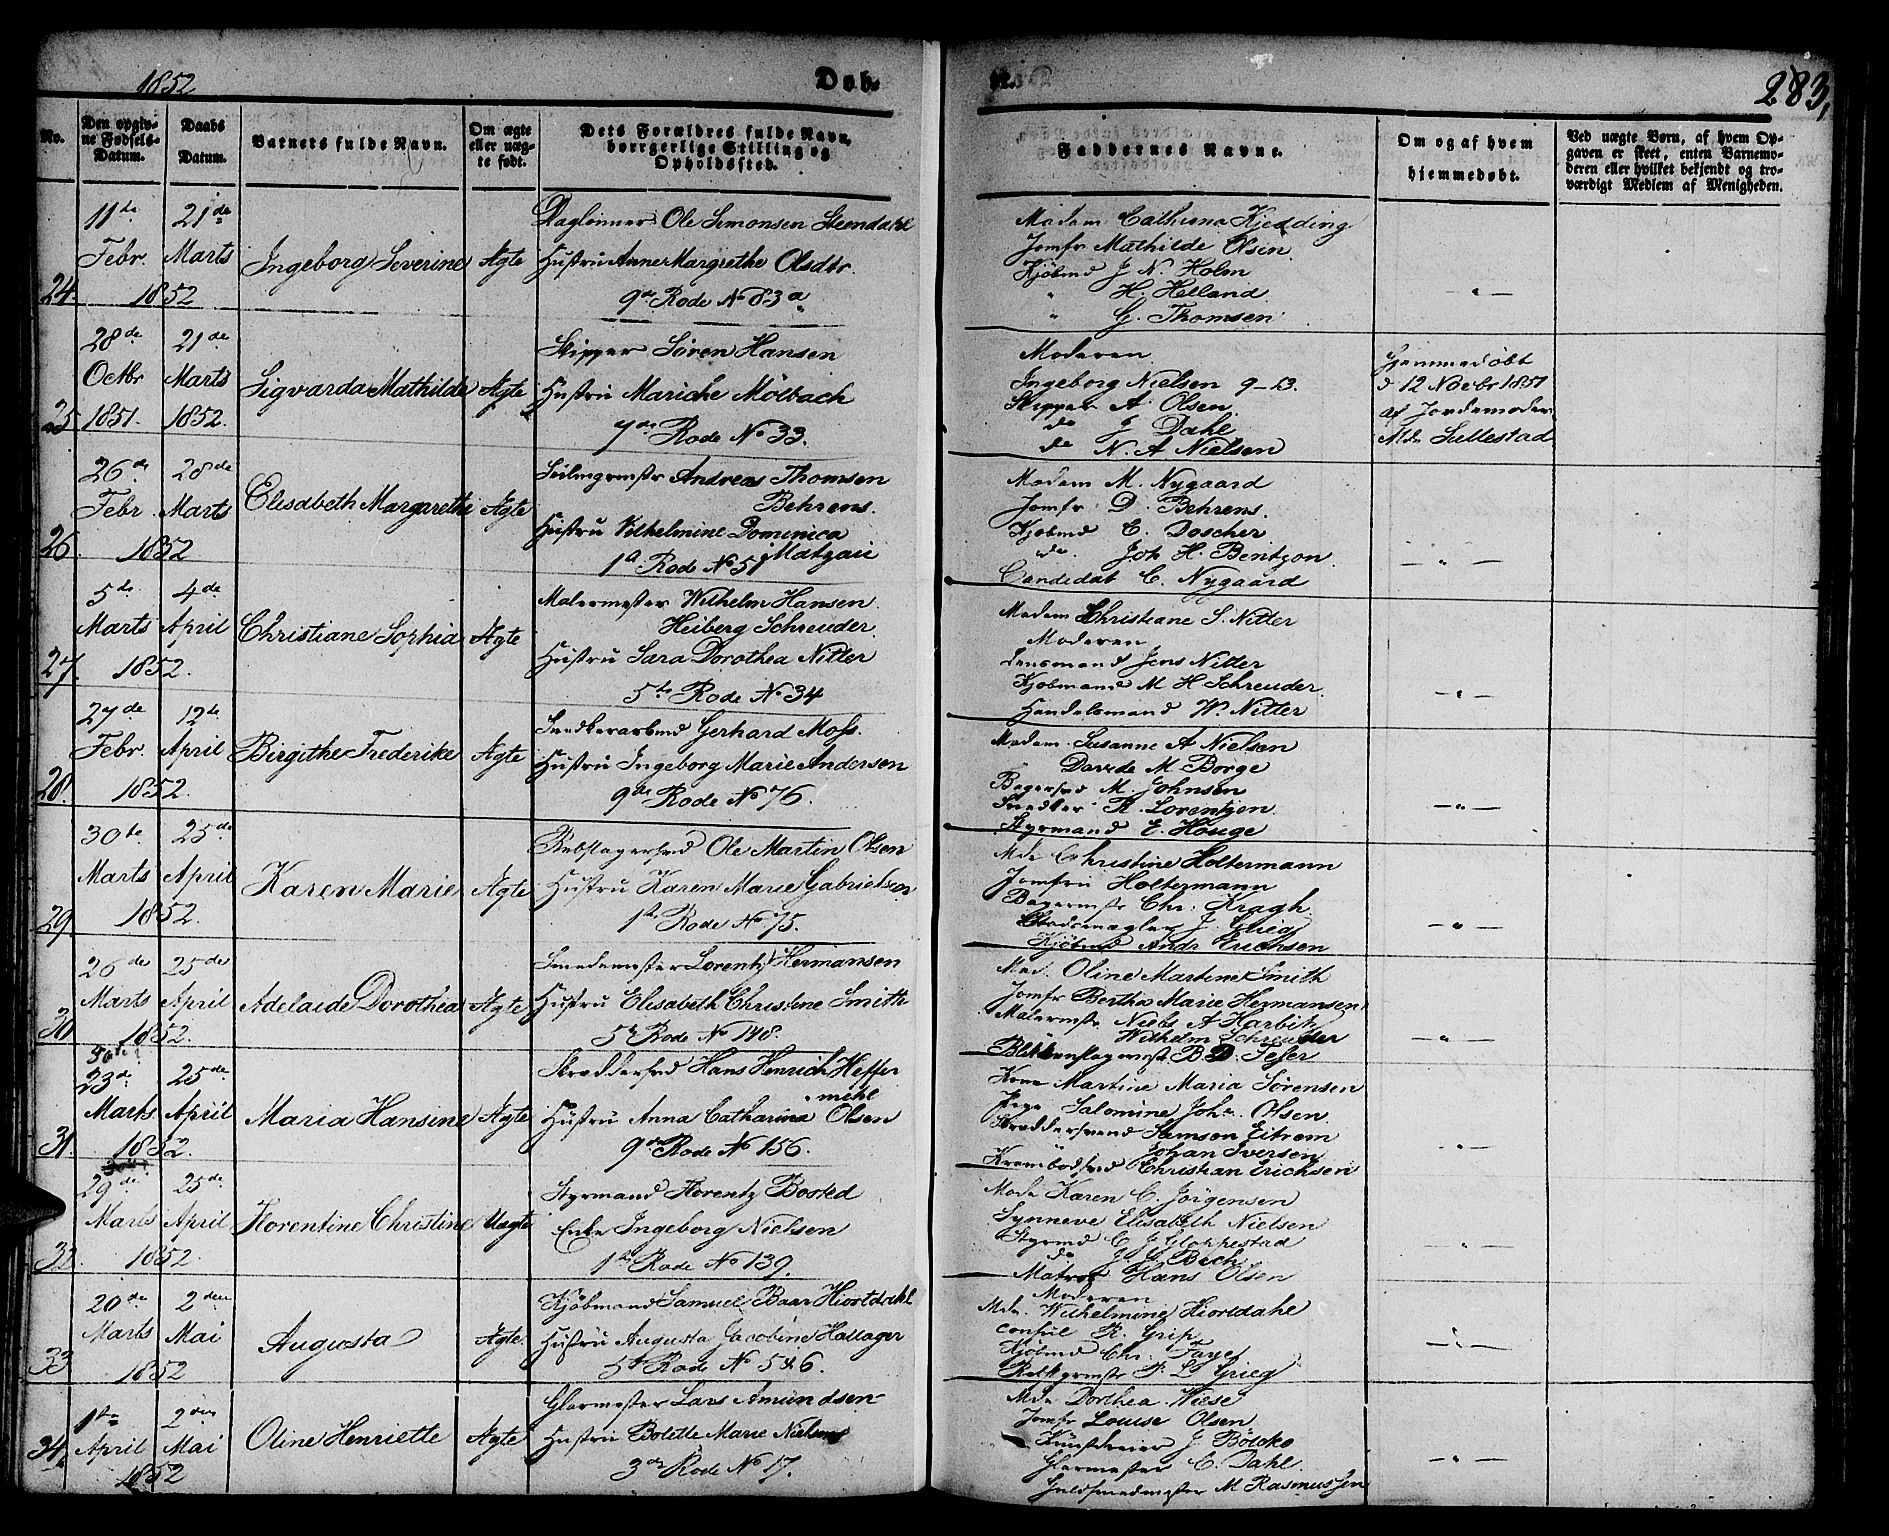 1852
Døb-
te.
283,
No.
Den opgiv-
ne Fødsels-
Datum.
Daabs
Datum.
Barnets fulde Navn.
Om ægte
eller uæg-
te født.
Dets Forældres fulde Navn,
borgerlige Stilling og
Opholdssted.
Faddernes Navne.
Om og af hvem
hjemmedøbt.
Ved uægte Børn, af hvem Op-
gaven er skeet, enten Barnemo-
deren eller hvilket bekjendt og tro-
værdigt Medlem af Menigheden.
24.
11te Febr. 21de Marts 1852
Ingeborg Severine
Ægte
Daglønner Ole Simonsen Steendahl
Hustru Anne Margrethe Olsdtr.
9de Rode No 83a
Madam Cathrina Kjedding
Jomfr Mathilde Olsen
Kjøbmd J N. Holm
" H. Helland
" G. Thomsen
25
28de Octbr 1851. 21de Marts 1852.
Sigvarda Mathilde
Ægte
Skipper Søren Hansen
Hustru Mariche Mölbach
7de Rode No 33.
Moderen
Ingeborg Nielsen 9-13.
Skipper A. Olsen
do J Dahl
do N. A Nielsen
Hjemmedøbt
d 12 Novbr 1851
af Jordemoder
Md. Sullestad
26.
26de Febr 28de Marts 1852
Elisabeth Margarethe
Ægte
Seilmgrmstr Andreas Thomsen
Behrens.
Hustru Vilhelmine Dominica
Matzau
1ste Rode No 51
Madam M. Nygaard
Jomfr D. Behrens.
Kjøbmd C. Doscher
do. Joh H. Bentzon.
Candidat C. Nygaard
27.
5te Marts 4de April 1852.
Christiane Sophia
Ægte
Malermester Wilhelm Hansen
Heiberg Schreuder.
Hustru Sara Dorothea Nitter
5te Rode No 34
Madam Christiane S. Nitter
Moderen
Lensmand Jens Nitter
Kjøbmand M H Schreuder
Handelsmand W. Nitter
28.
27de Febr. 12te April 1852.
Birgithe Frederike
Ægte
Snedkerarbmd Gerhard Moss.
Hustru Ingeborg Marie Andersen
9de Rode No 76.
Madam Susanne A Nielsen
Davide M Börge
Bagersvd M. Johnsen
Snedker R. Lorentzen
Styrmand E. Houge
29.
30te Marts 25de April 1852.
Karen Marie
Ægte
Rebslagersvd Ole Martin Olsen
Hustru Karen Marie Gabrielsen
1ste Rode No 75.
Mde Christine Holtermann
Jomfru Holtermann
Bagermstr Chr: Kragh
J. Grieg
Kjøbmd Andr Erichsen
30.
26de Marts 25de April 1852.
Adelaide Dorothea
Ægte
Smedemester Lorentz Hermansen
Hustru Elisabeth Christine Smith
5te Rode No 148.
Mad. Oline Martine Smith
Jomfr Berthe Marie Hermansen
Malermstr Niels A Harbitz
Wilhelm Schreuder
Blikkenslagermstr B D. Feser
31.
23de Marts 25de April 1852.
Maria Hansine
Ægte
Skræddersvd Hans Henrich Heffer
mehl
Hustru Anna Catharina Olsen
9de Rode No 156.
Kone Martine Maria Sørensen
Pige Salomine Johe. Olsen
Skræddersvend Samson Eitrem
Johan Iversen
Krambodsvd Christian Erichsen
32.
29de Marts 25de April 1852.
Florentine Christine
Uægte
Styrmand Florentz Bosted
Enke Ingeborg Nielsen
1ste Rode No 139.
Mde Karen C. Jörgensen
Synneve Elisabeth Nielsen
Styrmd C J Gloppestad
do J. G. Bech
Matros Hans Olsen
33
20de Marts 2den Mai 1852
Augusta
Ægte.
Kjøbmand Samuel Baar Hiortdahl
Hustru Augusta Jacobine Hallager
5te Rode No 5 & 6.
Moderen
Mdm. Wilhelmine Hiortdahl
Consul R. Grip
Kjøbmd Chr. Faye
P. L. Grieg
34.
1ste April 2den Mai 1852
Oline Henriette
Ægte
Glarmester Lars Amundsen
Hustru Bolette Marie Nielsen
3die Rode No 17.
Mde Dorthea Wiese
Jomfr Louise Olsen
J Bölcko
Glarmester C. Dahl
Guldsmedmester M Rasmussen